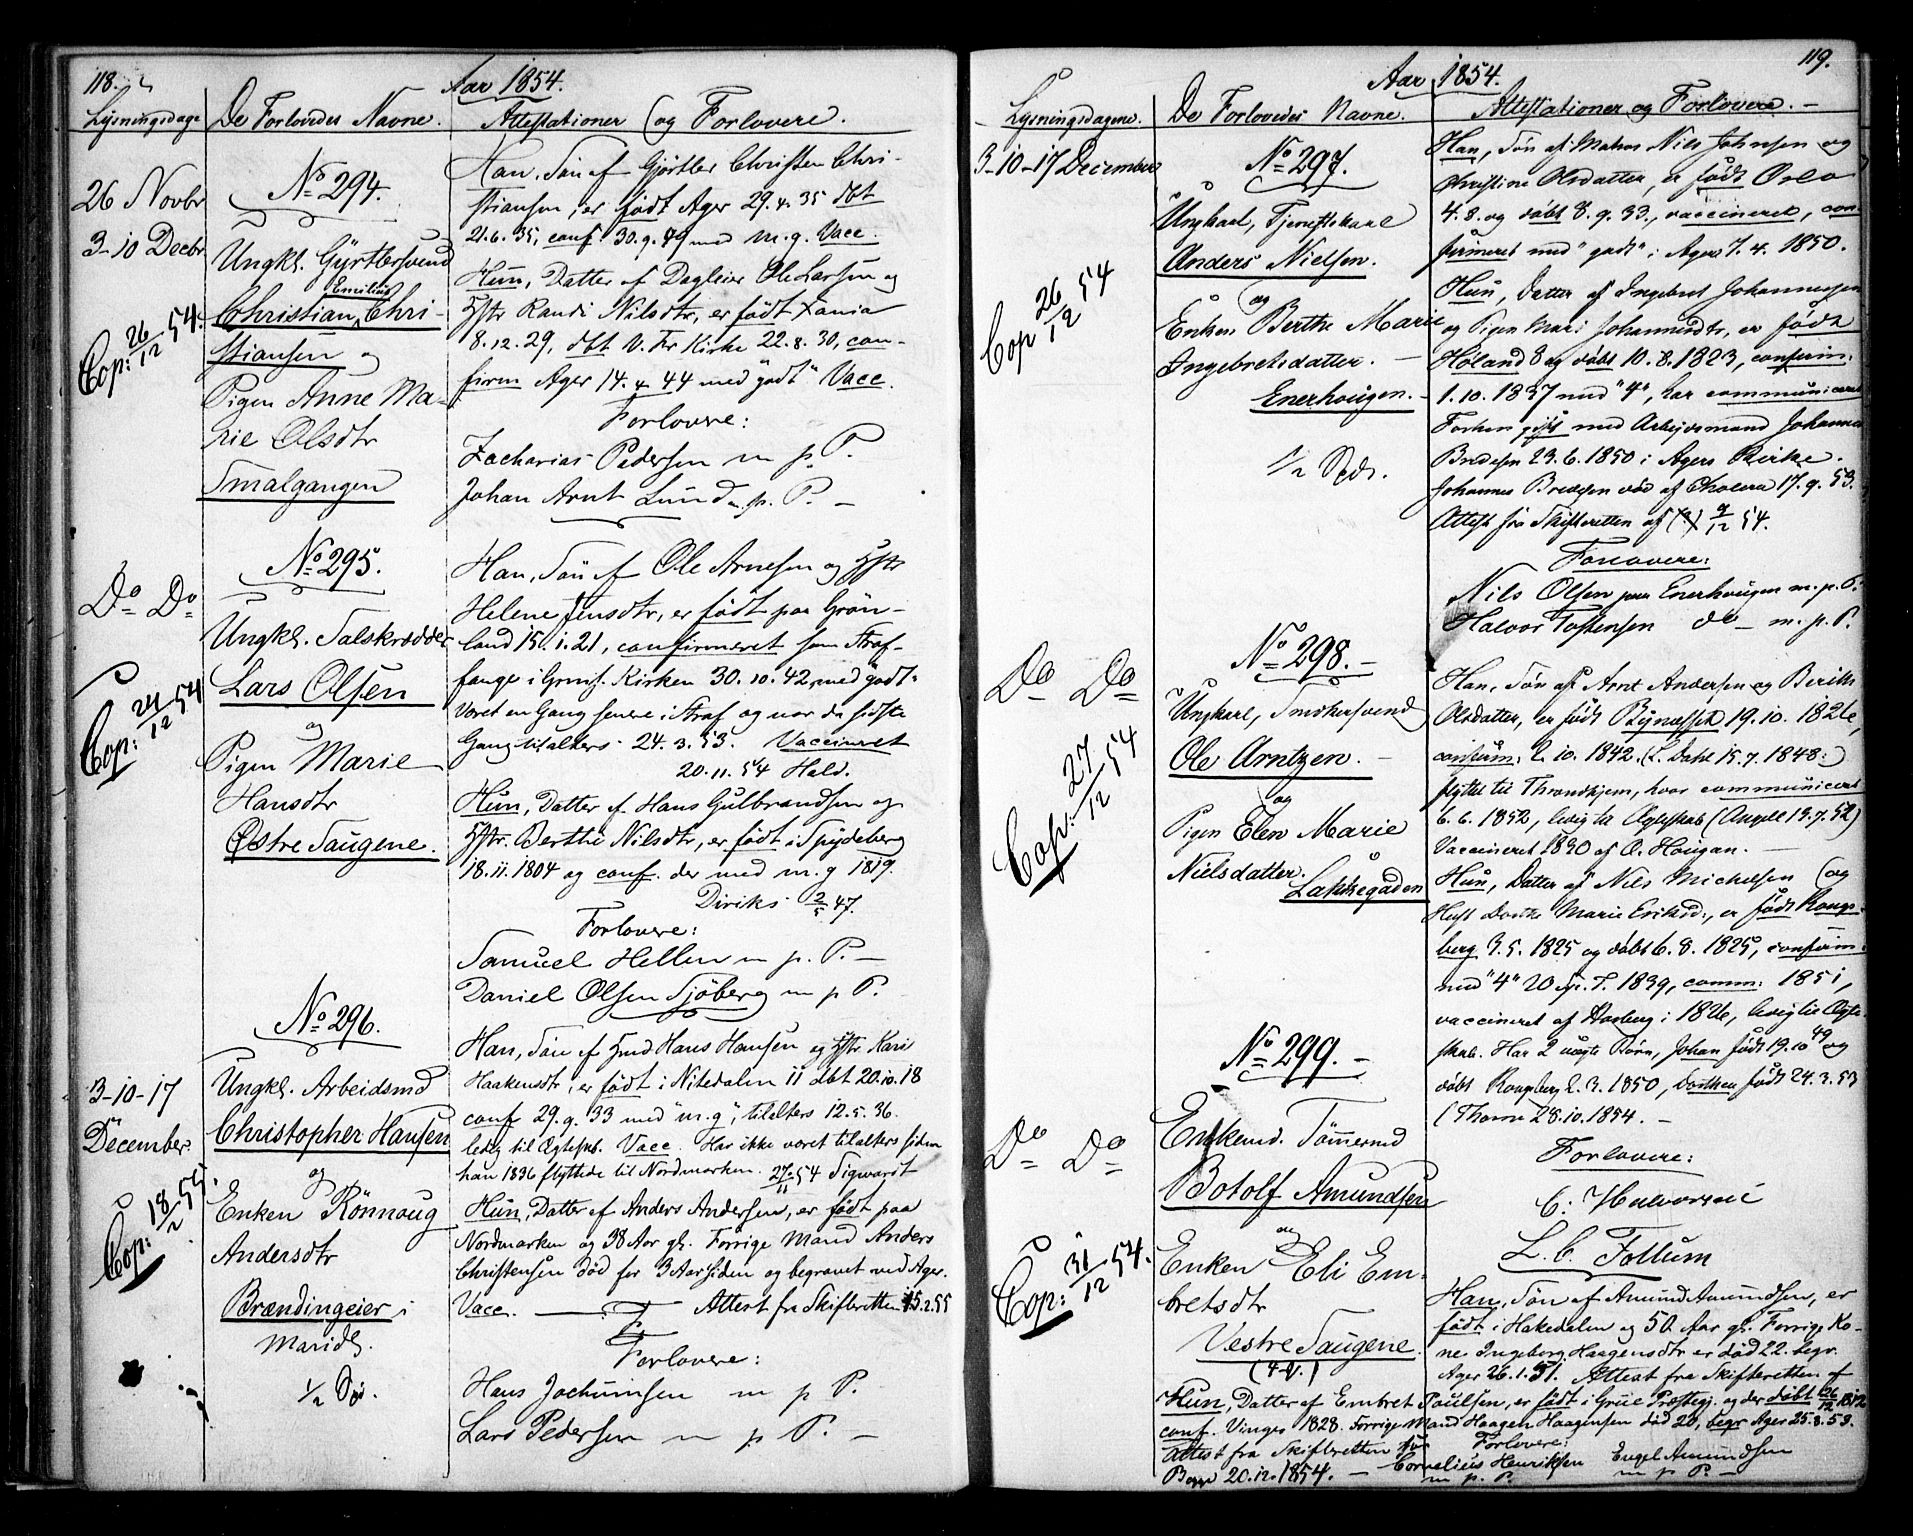 118.
Aar 1854.
Lysningsdage
De Forlovedes Navne.
Attestationer og Forlovere.
26 Novbr
3-10 Decbr
Cop: 26/12 54.
No 294.
Ungkl. Gyrtlersvend
Emilius
Christian Chri-
stiansen og
Pigen Anne Ma-
rie Olsdtr
Smalgangen
Han, Søn af Gjørtler Christen Chri-
stiansen, er født Ager 29.4.35 dbt
21.6.35, conf. 30.9.49 med m.g. Vacc.
Hun, Datter af Dagleier Ole Larsen og
Hstr Randi Nilsdtr, er født Xania
8.12.29, dbt V. Fr Kirke 22.8.30, con-
firm Ager 14.4.44 med "godt" Vacc.
Forlovere:
Zacharias Pedersen m. p. P.
Johan Arnt Lund m. p. P. —
Do Do
Cop: 24/12 54
No 295.
Ungkl. Salskrædder
Lars Olsen
og
Pigen Marie
Hansdtr
Østre Saugene.
Han, Søn af Ole Arnesen og Hstr
Helene Jensdtr, er født paa Grøn-
land 15.1.21, confirmeret som Straf-
fange i Grms. Kirken 30.10.42 med "godt"
Været en Gang senere i Straf og var da sidste
Gang tilalters 24.3.53. Vaccineret
20.11.54 Hald.
Hun, Datter af Hans Gulbrandsen og
Hstr. Berthe Nilsdtr, er født i Spydeberg
18.11.1804 og conf. der med m.g 1819.
Diriks 2/5 47.
Forlovere:
Samuel Hellen m. p. P. —
Daniel Olsen Sjøberg m p P.
3-10-17
December
Cop: 18/2 55.
No 296.
Ungkl. Arbeidsmd
Christopher Hansen
og
Enken Rønnoug
Andersdtr
Brændingeier i
Maridl.
1/2 Spd.
Han, Søn af Hmd Hans Hansen og Hstr Kari
Haakensdtr, er født i Nitedalen 11 dbt 20.10.18
conf 29.9.33 med "m.g", tilalters 12.5.36.
ledig til Ægtesk. Vacc. Har ikke været tilalters siden
han 1836 flyttede til Nordmarken. 27/11 54 Sigwardt
Hun, Datter af Anders Andersen, er født paa
Nordmarken og 38 Aar gl. Forrige Mand Anders
Christensen død for 3 Aar siden og begravet ved Ager.
Vacc. — Attest fra Skifteretten 15.2.55
Forlovere:
Hans Jochumsen m p P.
Lars Pedersen m p P. —
119.
Aar 1854.
Lysningsdagene.
De Forlovedes Navne.
Attestationer og Forlovere. —
3-10-17 December
Cop 26/12 54
No 297.
Ungkarl, Tjenestekarl
Anders Nielsen.
og
Enken Berthe Marie
Ingebretsdatter. —
Enerhougen. —
1/2 Spdr.
Han, Søn af Matros Nils Johnsen og
Christine Olsdatter, er født Oslo
4.8. og døbt 8.9.33., vaccineret, con-
firmeret med "godt" i Ager 7.4.1850.
Hun, Datter af Ingebret Johannessen
og Pigen Mari Johannesdtr, er født
Høland 8 og døbt 10.8.1823, confirm.
1.10.1837 med "4", har communiceret
Forhen gift med Arbeidsmand Johannes
Bredesen 23.6.1850 i Agers Kirke.
Johannes Bredesen død af Cholera 17.9.53.
Attest fra Skifteretten af 9/12 54.
Forlovere:
Nils Olsen paa Enerhougen m. p. P.
Halvor Tostensen do — m. p. P.
Do Do
Cop: 27/12 54
No 298. —
Ungkarl, Smedersvend
Ole Arntzen. —
og
Pigen Elen Marie
Nielsdatter.
Lakkegaden
Han, Søn af Arnt Andersen og Berith
Olsdatter, er født Bynæsset 19.10.1826,
confirm. 2.10.1842. (L. Dahl 15.7.1848:)
flyttet til Throndhjem, hvor communiceret
6.6.1852, ledig til Ægteskab (Angell 19.7.52)
Vaccineret 1830 af O. Hougan. —
Hun, Datter af Nils Michelsen og
Hust Dorthe Marie Eriksd., er født Kongs-
berg 3.5.1825 og døbt 6.8.1825, confirm.
med "4" 20 S. e. T. 1839, comm: 1851,
vaccineret af Horberg i 1826, ledig til Ægte-
skab. Har 2 uægte Børn, Johan født 19.10 49 og
døbt Kongsberg 2.3.1850, Dorthea født 24.3.53
(Thorne 28.10.1854. —
Forlovere:
C: Halvorsen
L. C. Tollum
Do Do
Cop: 31/12 54.
No 299. —
Enkemd. Tømmermd
Botolf Amundsen
og
Enken Eli Em-
bretsdtr
Vestre Saugene.
Han, Søn af Amund Amundsen, er
født i Hakedalen og 50 Aar gl. Forrige Ko-
ne Ingeborg Haagensdtr er død 22. begr.
Ager 26.1.51. Attest fra Skifteretten af
Hun, Datter af Embret Poulsen, er født i Grue Præstegj. og der døbt 26/12 1812
conf. Vinger 1828. Forrige Mand Haagen Haagensen død 20, begr Ager 25.8.53.
Attest fra Skifteretten for
Begge 20.12.1854. —
Forlovere:
Cornelius Henriksen
m. p. P.
Engel Amundsen
m p P. —